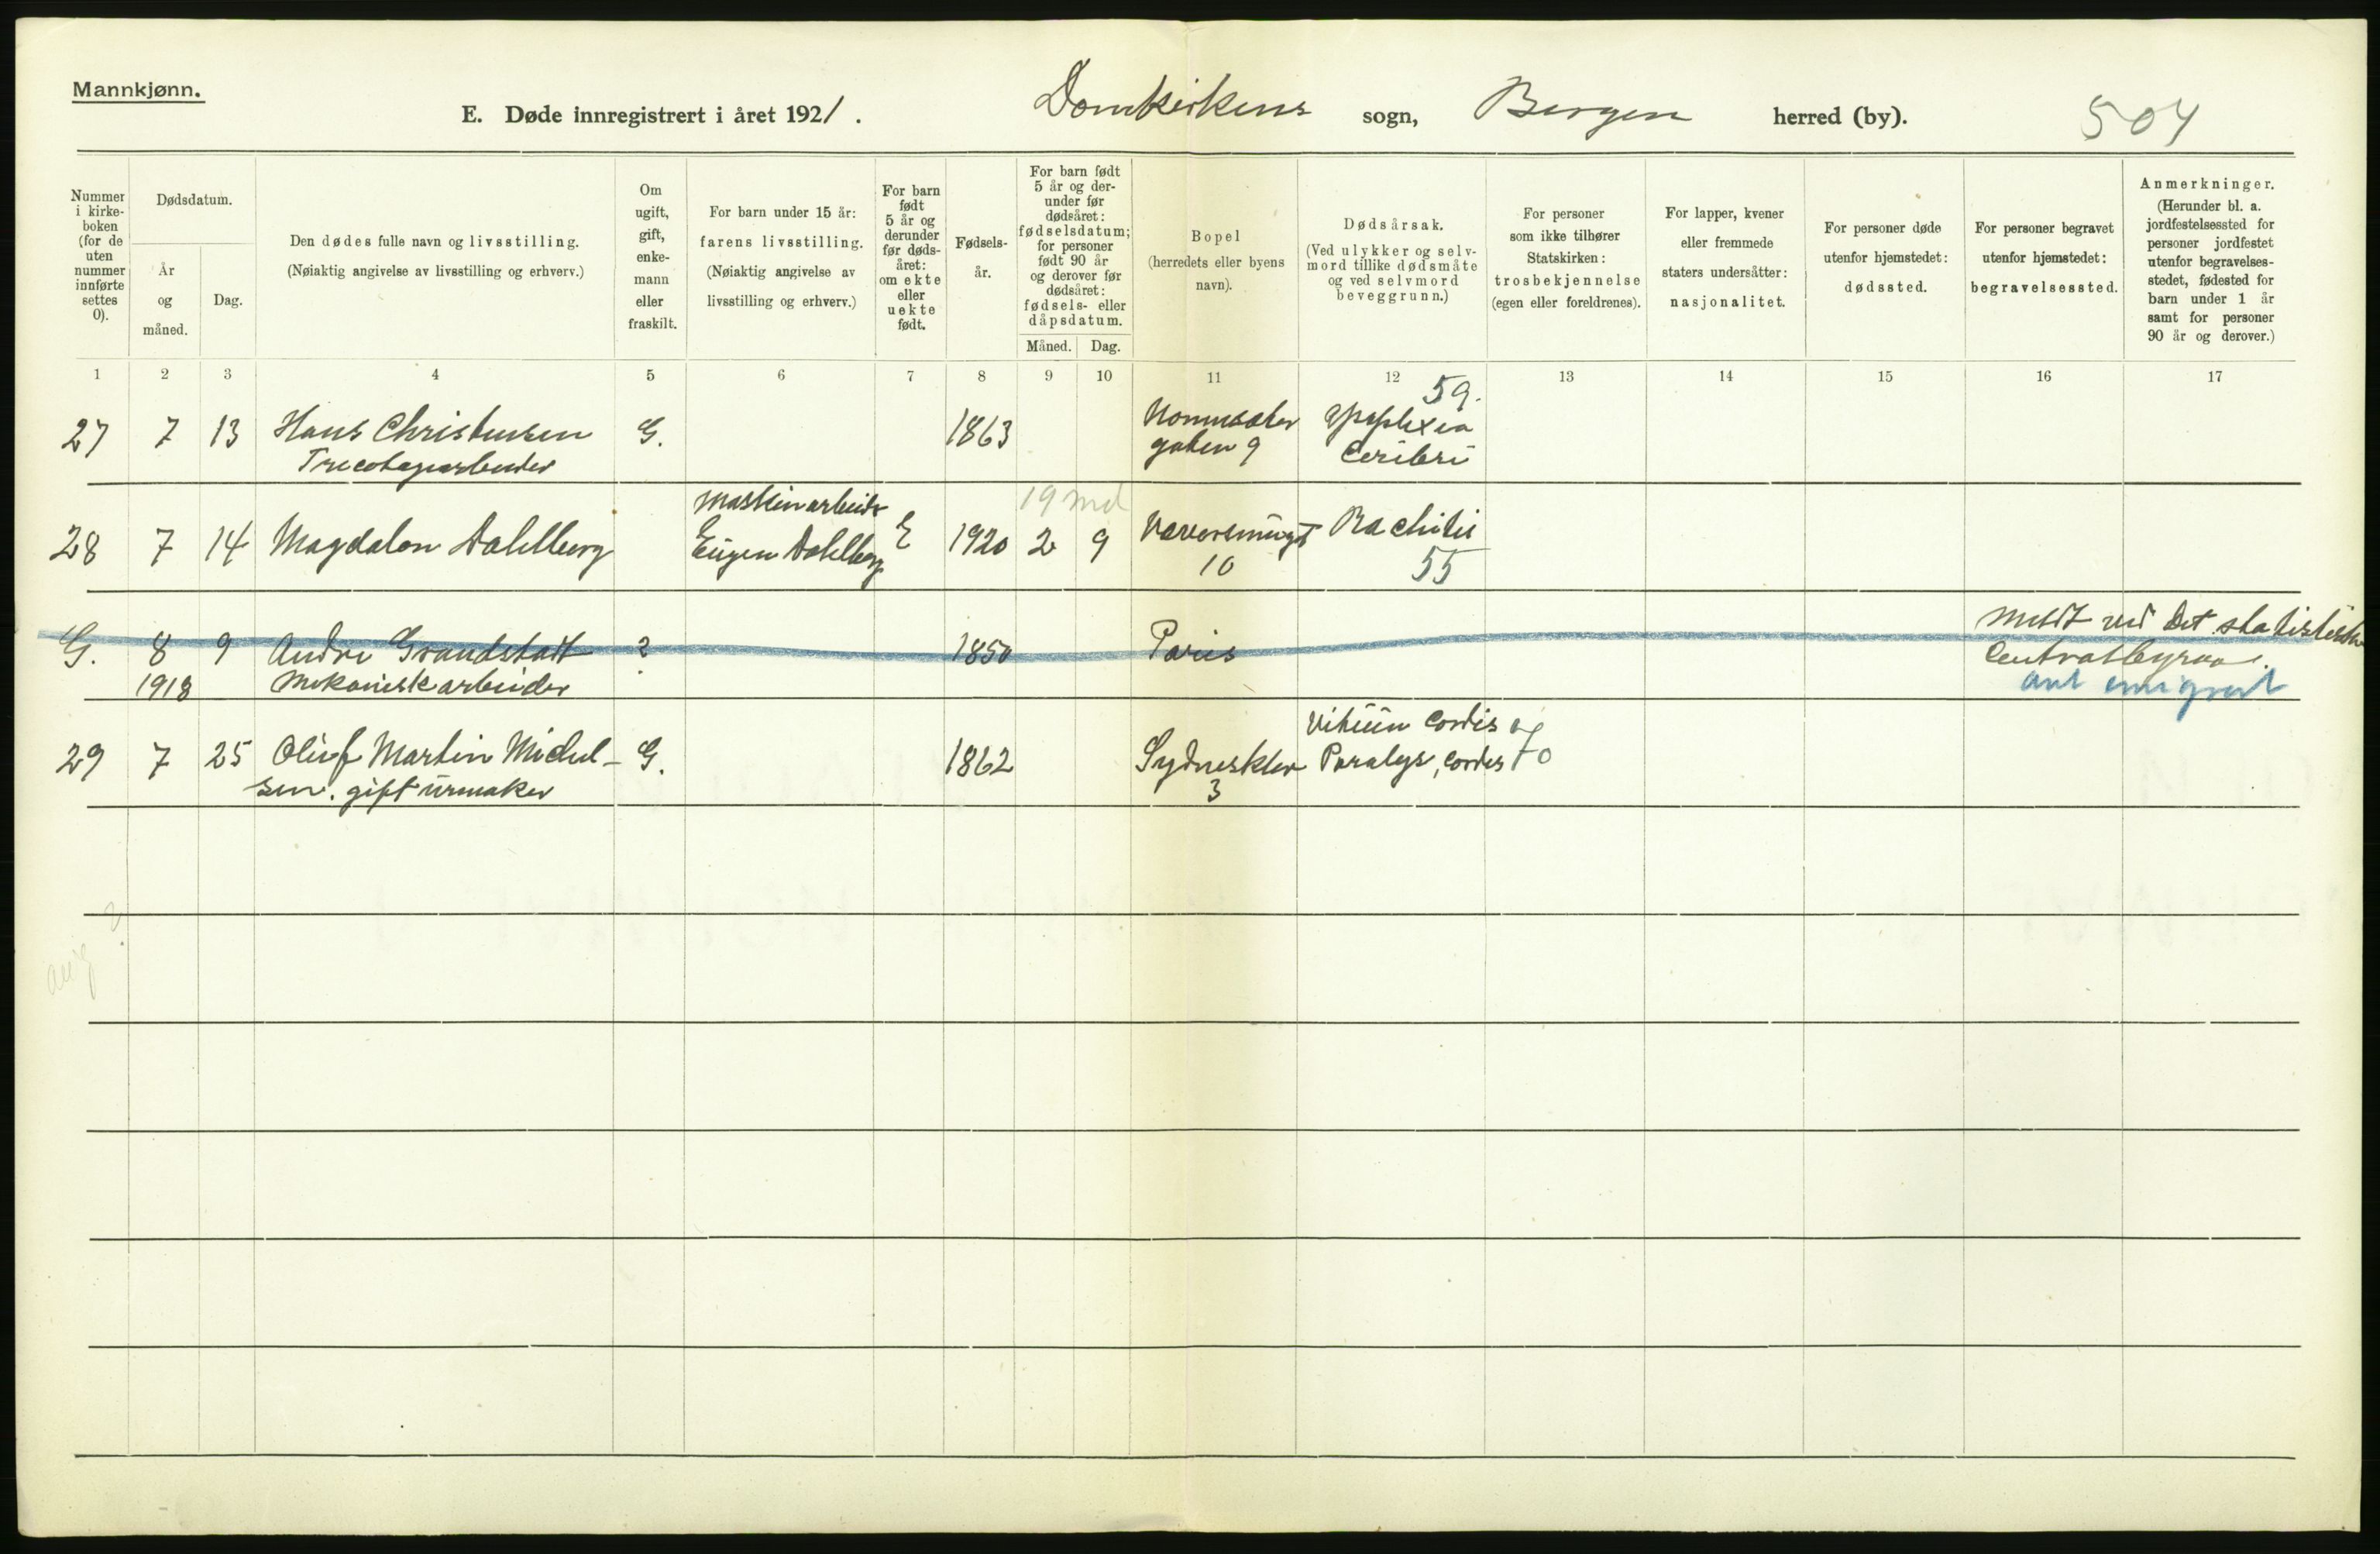 Mannkjønn.
E. Døde innregistrert i året 1921. Domkirkens sogn, Bergen herred (by). 504
Nummer i kirke- boken (for de uten nummer innførte settes 0).
Dødsdatum.
År og måned.
Dag.
Den dødes fulle navn og livsstilling.
(Nøiaktig angivelse av livsstilling og erhverv.)
Om ugift, gift, enke- mann eller fraskilt.
For barn under 15 år:
farens livsstilling.
(Nøiaktig angivelse av
livsstilling og erhverv.)
For barn født 5 år og derunder før døds- året: om ekte eller uekte født.
Fødsels- år.
For barn født 5 år og der- under før dødsåret: fødselsdatum; for personer født 90 år og derover før dødsåret: fødsels- eller dåpsdatum.
Måned. Dag.
Bopel
(herredets eller byens
navn).
Dødsårsak.
(Ved ulykker og selv-
mord tillike dødsmåte
og ved selvmord
beveggrunn.)
For personer
som ikke tilhører
Statskirken:
trosbekjennelse
(egen eller foreldrenes).
For lapper, kvener
eller fremmede
staters undersåtter:
nasjonalitet.
For personer døde
utenfor hjemstedet:
dødssted.
For personer begravet
utenfor hjemstedet:
begravelsessted.
Anmerkninger.
(Herunder bl. a.
jordfestelsessted for
personer jordfestet
utenfor begravelses-
stedet, fødested for
barn under 1 år
samt for personer
90 år og derover.)
1 2 3 4 5 6 7 8 9 10 11 12 13 14 15 16 17
59.
27 7 13 Hans Christensen G. 1863 apoplexia
Tricotagearbeider gaten 9 Ceribri
Maskinarbeider 19 md
28 7 14 Magdalon Dahlberg Eugen Dahlberg E 1920 2 9 Rachitis
10 55
Meldt ved Det statistiske
G. 8 9 Andre Grandstatt ? 1850 Paris Centralbyraa.
1918 Mekanisk arbeider ant emigrert
Vitium Cordis og
29 7 25 Oluf Martin Michel- G. 1862 Sydneskler Paralys, cordis 70
sen. gift urmaker 3